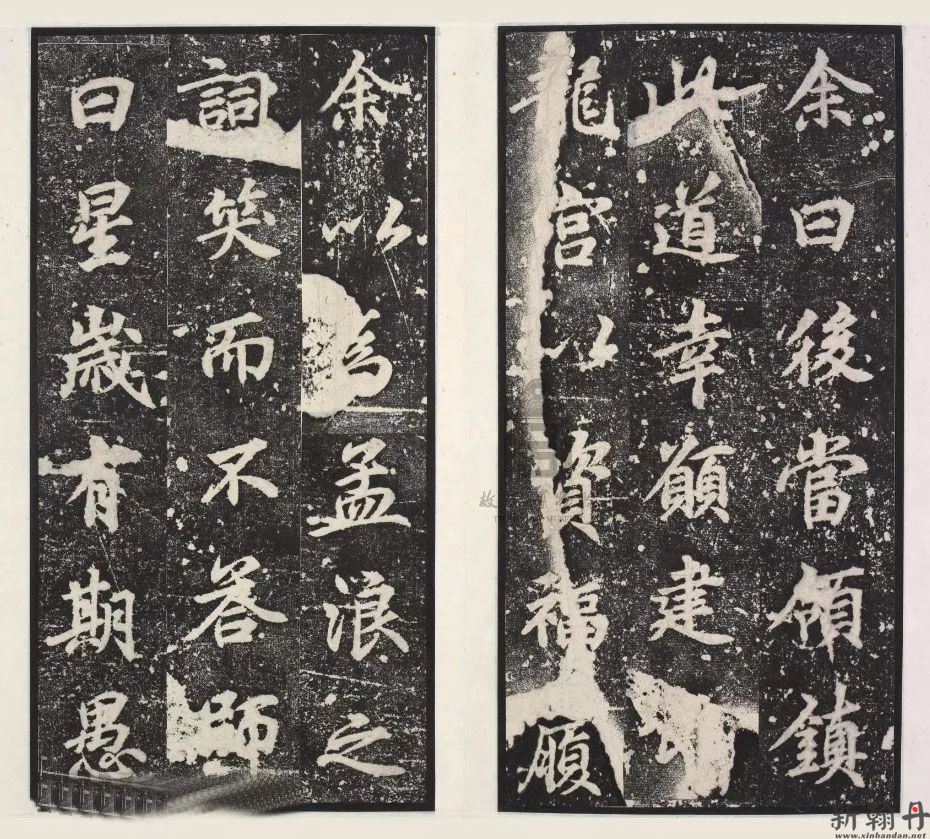 余曰後當領鎮
此道幸願建
龍宮以資福願
余以為孟浪之
詞笑而不荅師
曰星歲有期愚
新翰丹
www.xinhandan.net